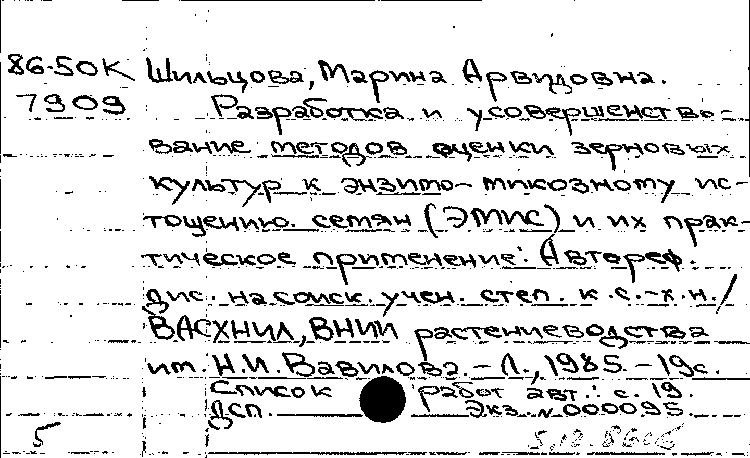 86-50К Шильцова, Марина Арвидовна.
7909 Разработка и усовершенство-
вание методов оценки зерновых
культур к энзимо-микозному ис-
тощению семян (ЭМИС) и их прак-
тическое применение: Автореф.
дис. на соиск. учен. степ. к.с.-х.н./
ВАСХНИЛ, ВНИИ растениеводства
им. Н.И. Вавилова. - Л., 1985. - 19с.
Список работ авт.: с. 19.
ДСП. Экз. № 000095
5